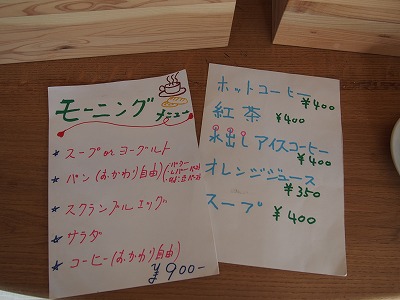 モーニング
メニュー
スープ or ヨーグルト
パン (おかわり自由)
スクランブルエッグ
サラダ
コーヒー (おかわり自由)
¥900-
ホットコーヒー
¥400
紅茶
¥400
水出しアイスコーヒー
¥400
オレンジジュース
¥350
スープ
¥400